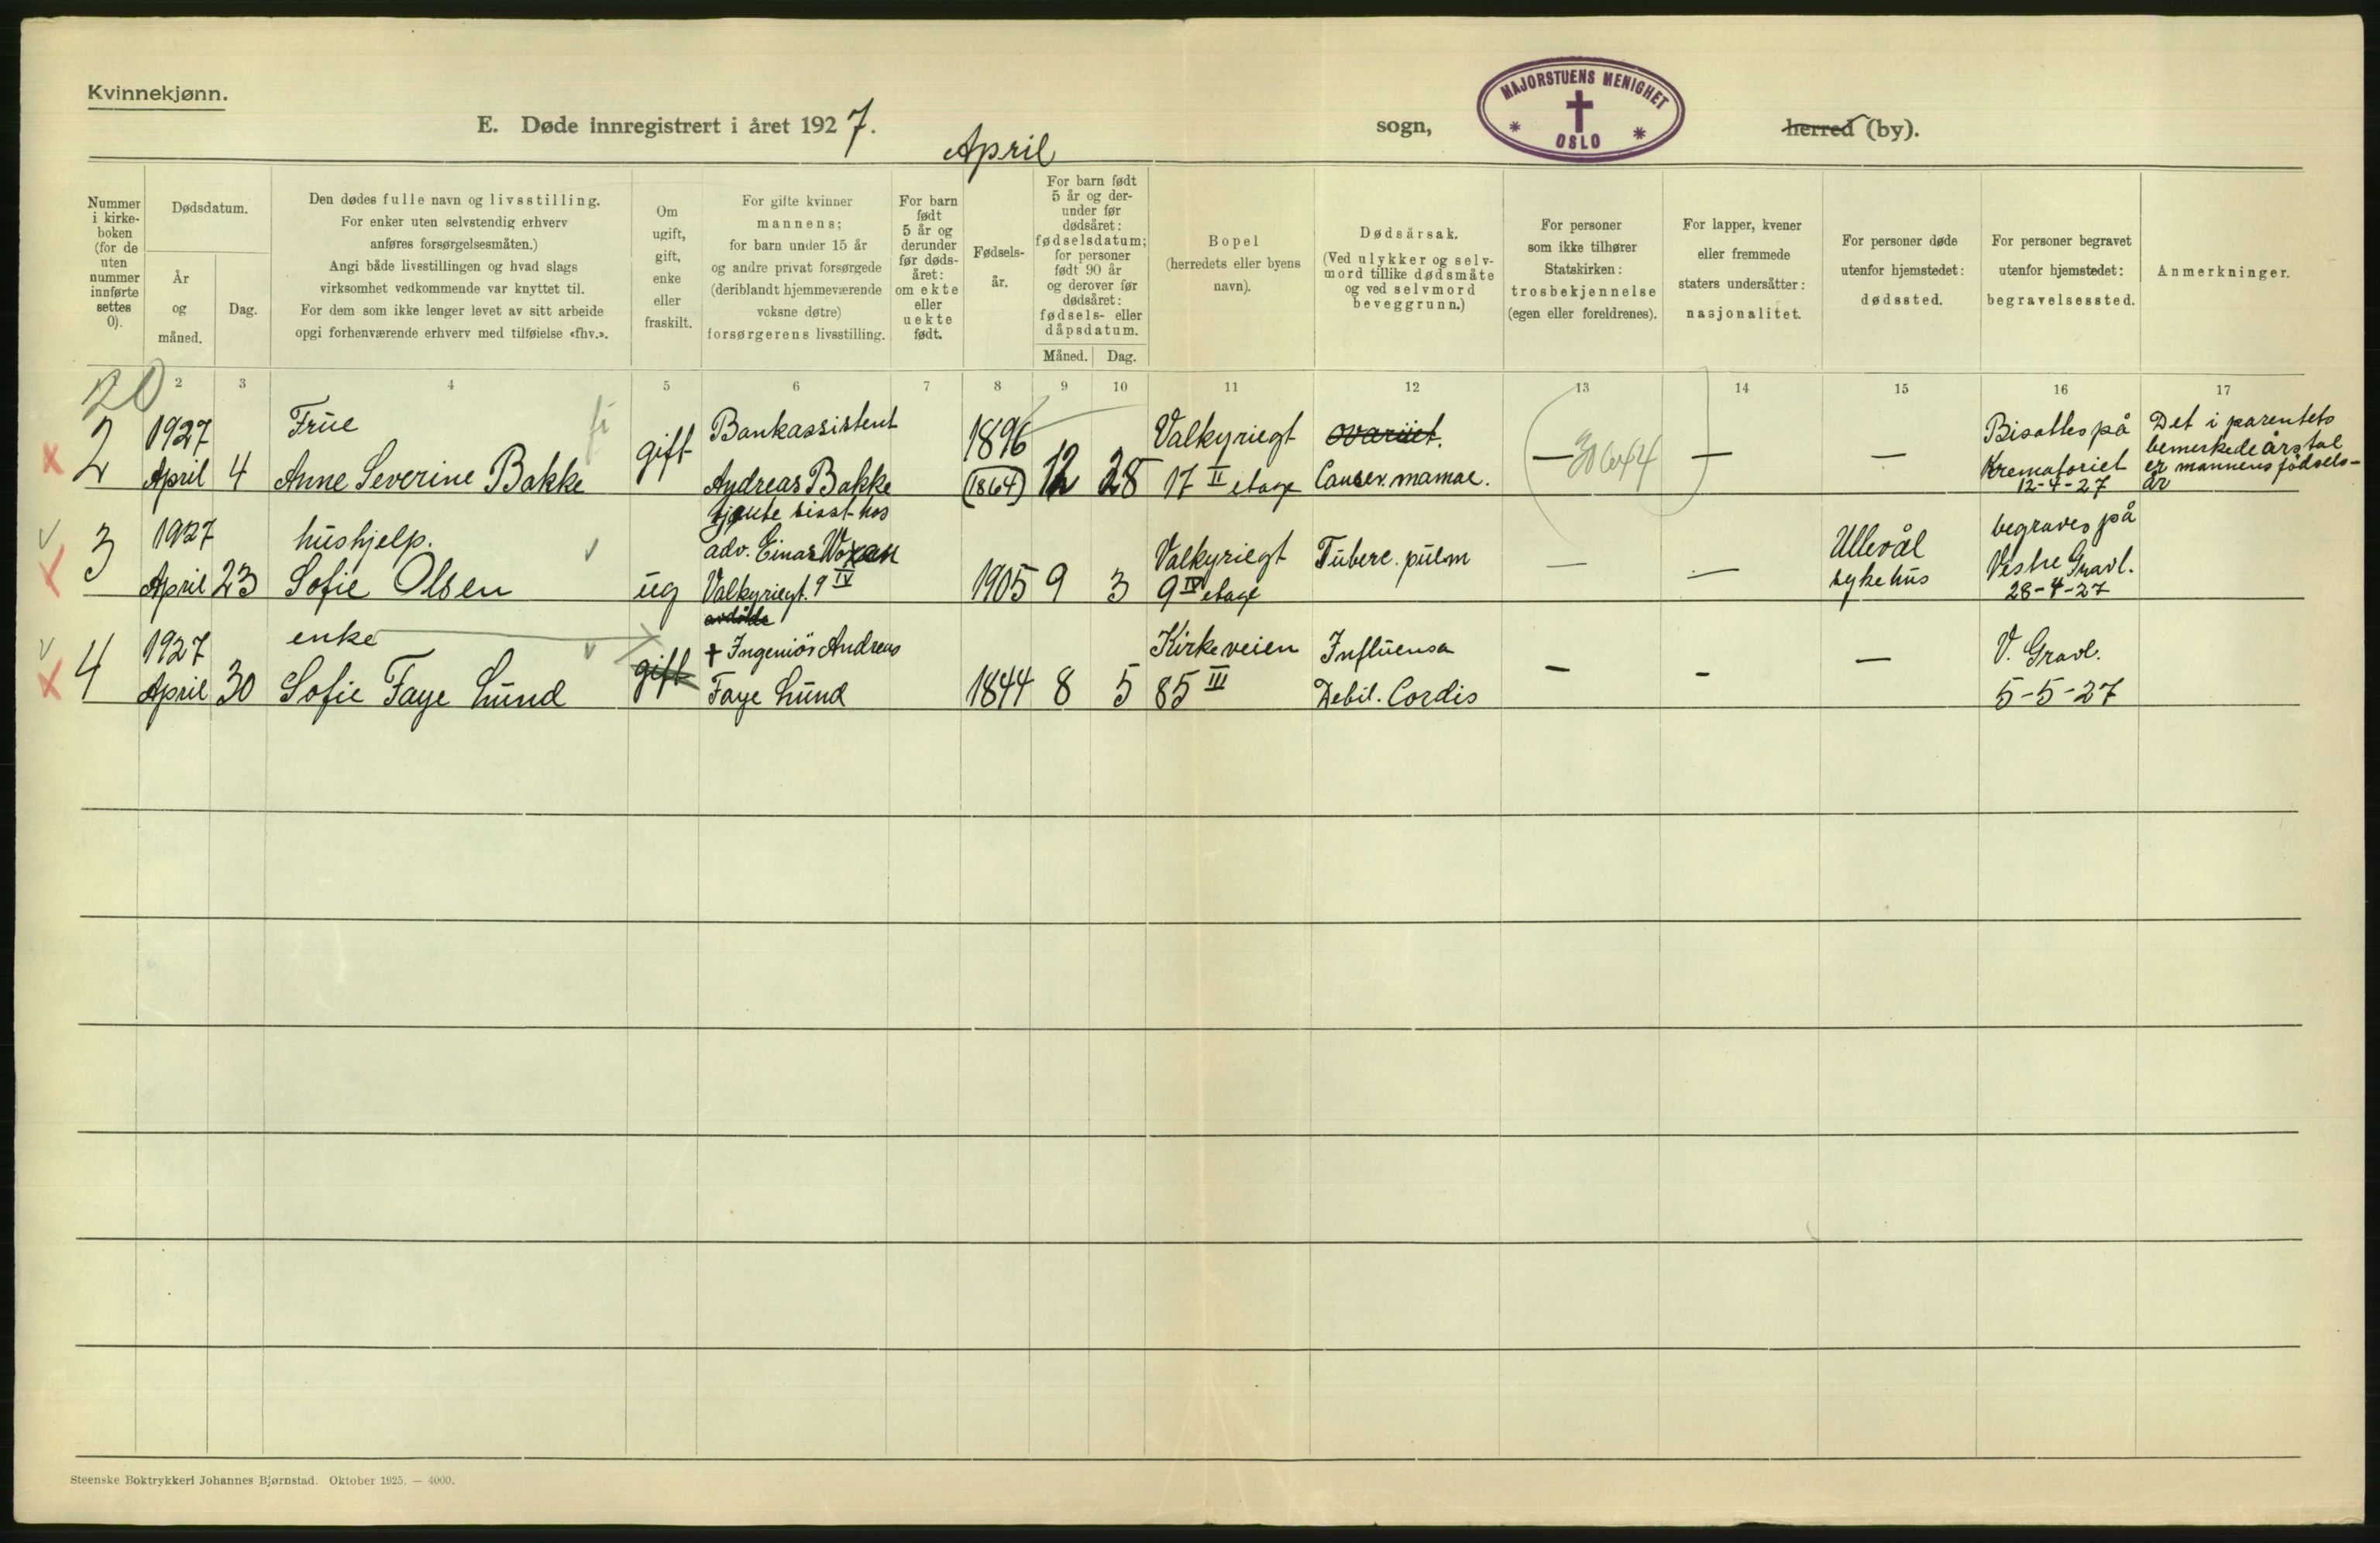 Kvinnekjønn.
E. Døde innregistrert i året 1927.
April
sogn,
MAJORSTUENS MENIGHET
* *
OSLO
herred (by).
Nummer
i kirke-
boken
(for de
uten
nummer
innførte
settes
0).
Dødsdatum.
År
og
måned.
Dag.
Den dødes fulle navn og livsstilling.
For enker uten selvstendig erhverv
anføres forsørgelsesmåten.)
Angi både livsstillingen og hvad slags
virksomhet vedkommende var knyttet til.
For dem som ikke lenger levet av sitt arbeide
opgi forhenværende erhverv med tilføielse «fhv.».
Om
ugift,
gift,
enke
eller
fraskilt.
For gifte kvinner
mannens;
for barn under 15 år
og andre privat forsørgede
(deriblandt hjemmeværende
voksne døtre)
forsørgerens livsstilling.
For barn
født
5 år og
derunder
før døds-
året:
om ekte
eller
uekte
født.
Fødsels-
år.
For barn født
5 år og der-
under før
dødsåret:
fødselsdatum;
for personer
født 90 år
og derover før
dødsåret:
fødsels- eller
dåpsdatum.
Måned.
Dag.
Bopel
(herredets eller byens
navn).
Dødsårsak.
(Ved ulykker og selv-
mord tillike dødsmåte
og ved selvmord
beveggrunn.)
For personer
som ikke tilhører
Statskirken:
trosbekjennelse
(egen eller foreldrenes).
For lapper, kvener
eller fremmede
staters undersåtter:
nasjonalitet.
For personer døde
utenfor hjemstedet:
dødssted.
For personer begravet
utenfor hjemstedet:
begravelsessted.
Anmerkninger.
20 2 3 4 5 6 7 8 9 10 11 12 13 14 15 16 17
2
1927
April
4
Frue
Anne Severine Bakke
gift
Bankassistent
Andreas Bakke
1896
(1864)
12
28
Valkyriegt
17 II etage
ovariiet.
Cancer. mamae.
—
30644
—
—
Bisattes på
Krematoriet
12-4-27
Det i parentets
bemerkede årstal
er mannens fødsels-
år
3
1927
April
23
hushjelp.
Sofie Olsen
ug
tjente sisst hos
adv. Einar Woxen
Valkyriegt. 9 IV
1905
9
3
Valkyriegt
9 IV etage
Tuberc. pulm
—
—
Ullevål
sykehus
begraves på
Vestre Gravl.
28-4-27
4
1927
April
30
enke
Sofie Faye Lund
gift
avdøde
+ Ingeniør Andreas
Faye Lund
1844
8
5
Kirkeveien
85 III
Influensa
Debil. Cordis
—
-
—
V. Gravl.
5-5-27
Steenske Boktrykkeri Johannes Bjørnstad. Oktober 1925. — 4000.